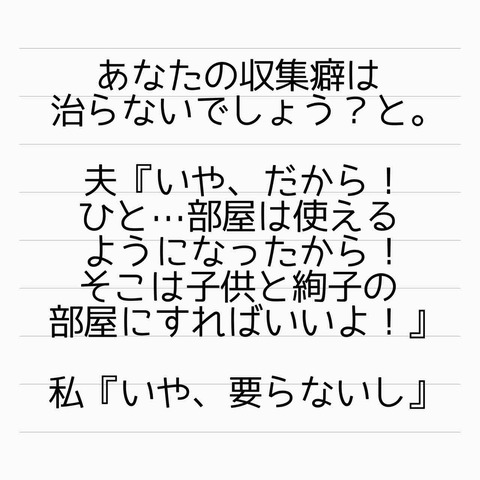 あなたの収集癖は
治らないでしょう？と。
夫『いや、だから！
ひと…部屋は使える
ようになったから！
そこは子供と絢子の
部屋にすればいいよ！』
私『いや、要らないし』